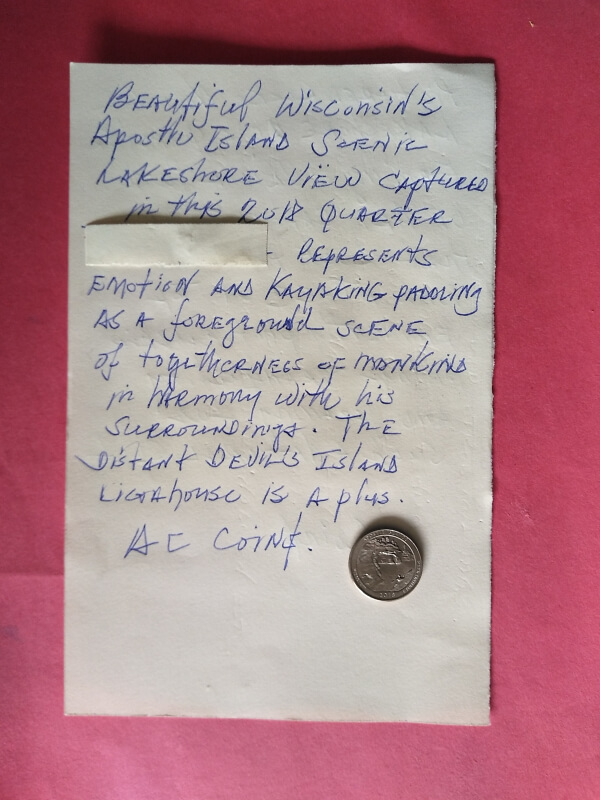 BEAUtiful Wisconsin's
Apostle Island Scenic
LAKESHORE View CAPTURED
in this 2018 QUARTER
- REPRESENTS
EMOTION AND KAYAKING PADDLING
AS A foreground SCENE
of togetherness of MANKIND
in HARMONY with his
SURROUNDINGS. THE
DISTANT DEVIL'S ISLAND
LIGHTHOUSE is A plus.
AE COIN$.
2018